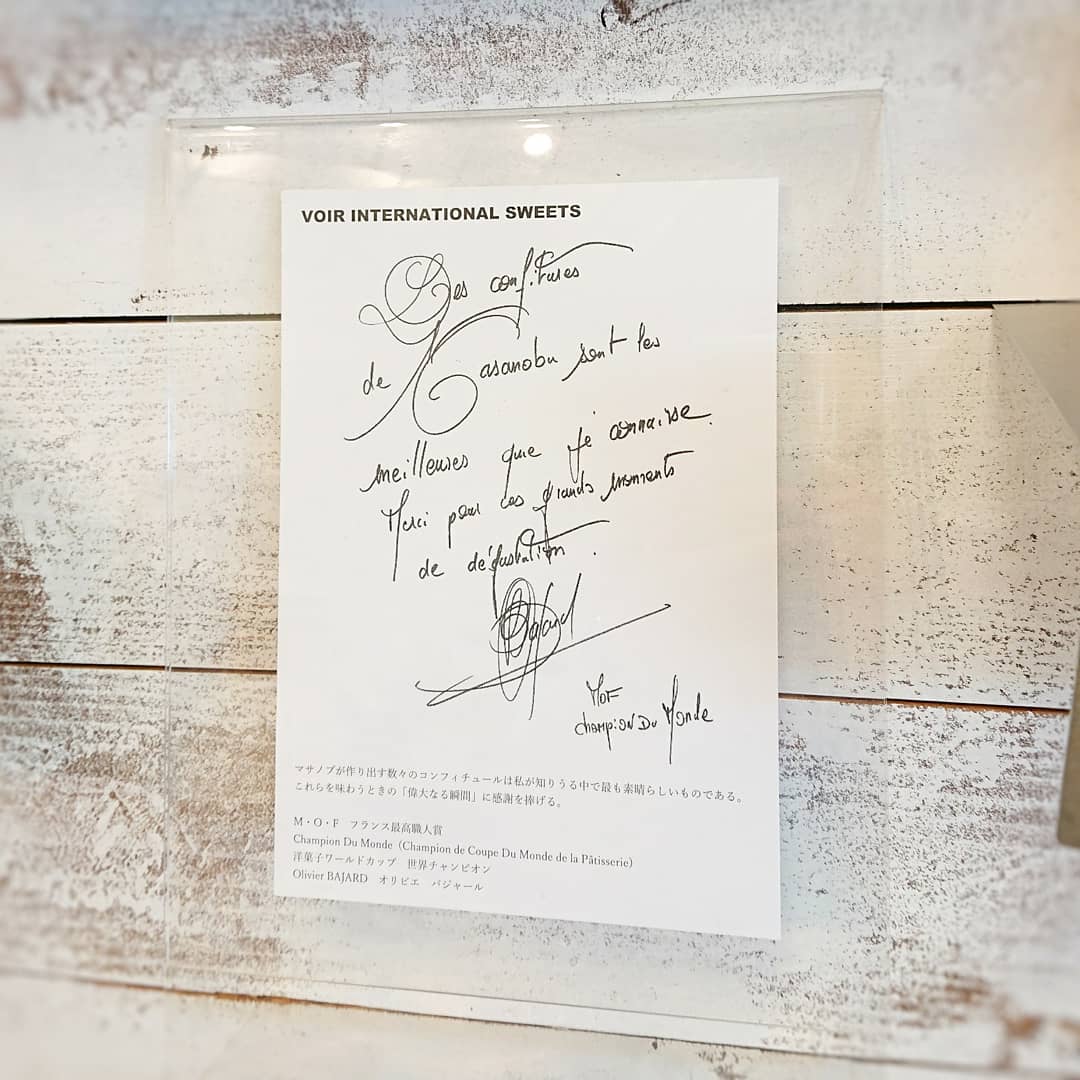 VOIR INTERNATIONAL SWEETS
Les confitures
de Masanobu sont les
meilleures que je connaisse.
Merci pour ces grands moments
de dégustation.
Bajard
MOF
champion Du Monde
マサノブが作り出す数々のコンフィチュールは私が知りうる中で最も素晴らしいものである。
これらを味わうときの「偉大なる瞬間」に感謝を捧げる。
M・O・F フランス最高職人賞
Champion Du Monde（Champion de Coupe Du Monde de la Pâtisserie）
洋菓子ワールドカップ 世界チャンピオン
Olivier BAJARD オリビエ バジャール